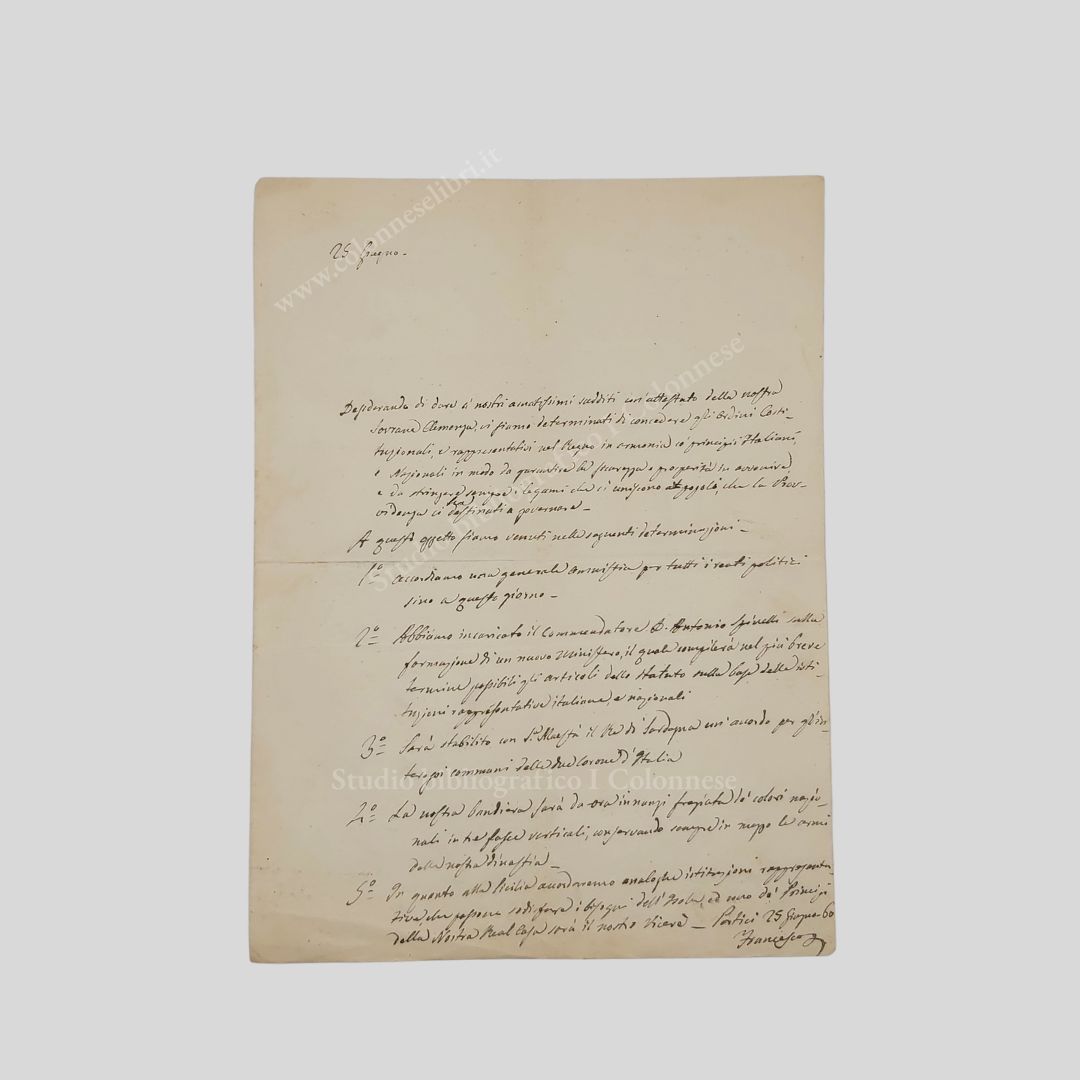 www.colonneselibri.it
25 Giugno -
Desiderando di dare a' nostri amatissimi sudditi un'attestato della nostra
Sovrana Clemenza, ci siamo determinati di concedere gli Ordini Costi-
tuzionali, e rappresentativi nel Regno in armonia co' principii Italiani,
e Nazionali in modo da garantire la sicurezza e prosperità in avvenire,
e da stringere sempre i legami che ci uniscono al popolo, che la Prov-
videnza ci ha destinati a governare -
A questo oggetto siamo venuti nelle seguenti determinazioni -
1º Accordiamo una generale amnistia per tutti i reati politici
sino a questo giorno -
2º Abbiamo incaricato il Commendatore D. Antonio Spinelli sulla
formazione di un nuovo Ministero, il quale compilerà nel più breve
termine possibili gli articoli dello Statuto sulla base delle isti-
tuzioni rappresentative italiane, e nazionali
3º Sarà stabilito con S. Maestà il Re di Sardegna un'accordo per gl'in-
teressi communi delle due Corone d'Italia
4º La nostra bandiera sarà da ora innanzi fregiata de' colori nazio-
nali in tre fasce verticali, conservando sempre in mezzo le armi
della nostra dinastia -
5º In quanto alla Sicilia accorderemo analoghe istituzioni rappresenta-
tive che possono sodisfare i bisogni dell'Isola, ed uno de' Principi
della Nostra Real Casa sarà il nostro Vicerè - Portici 25 Giugno 60
Francesco
Studio bibliografico I Colonnese
Studio bibliografico I Colonnese